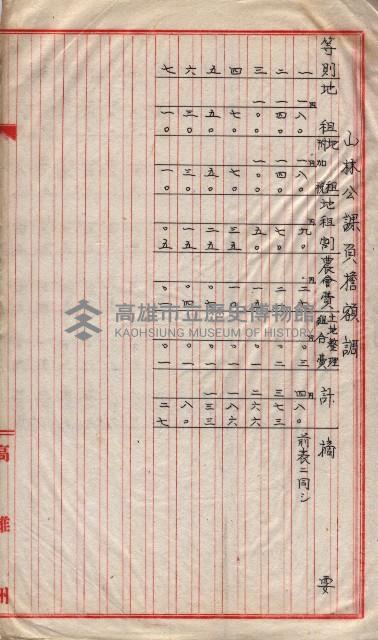 山林公課負擔額調
等則 地租 地租附加税 地租割 農會費 土地整理組合費 計 摘要
一 一八〇 一八〇 九〇 三 四八〇 前表ニ同シ
二 一四〇 一四〇 七〇 三七三
三 一〇〇 一〇〇 五〇 二六六
四 七〇 七〇 三五 一八六
五 五〇 五〇 二五 一三三
六 三〇 三〇 一五 八〇
七 一〇 一〇 〇五 二七
高雄州
高雄市立歷史博物館
KAOHSIUNG MUSEUM OF HISTORY